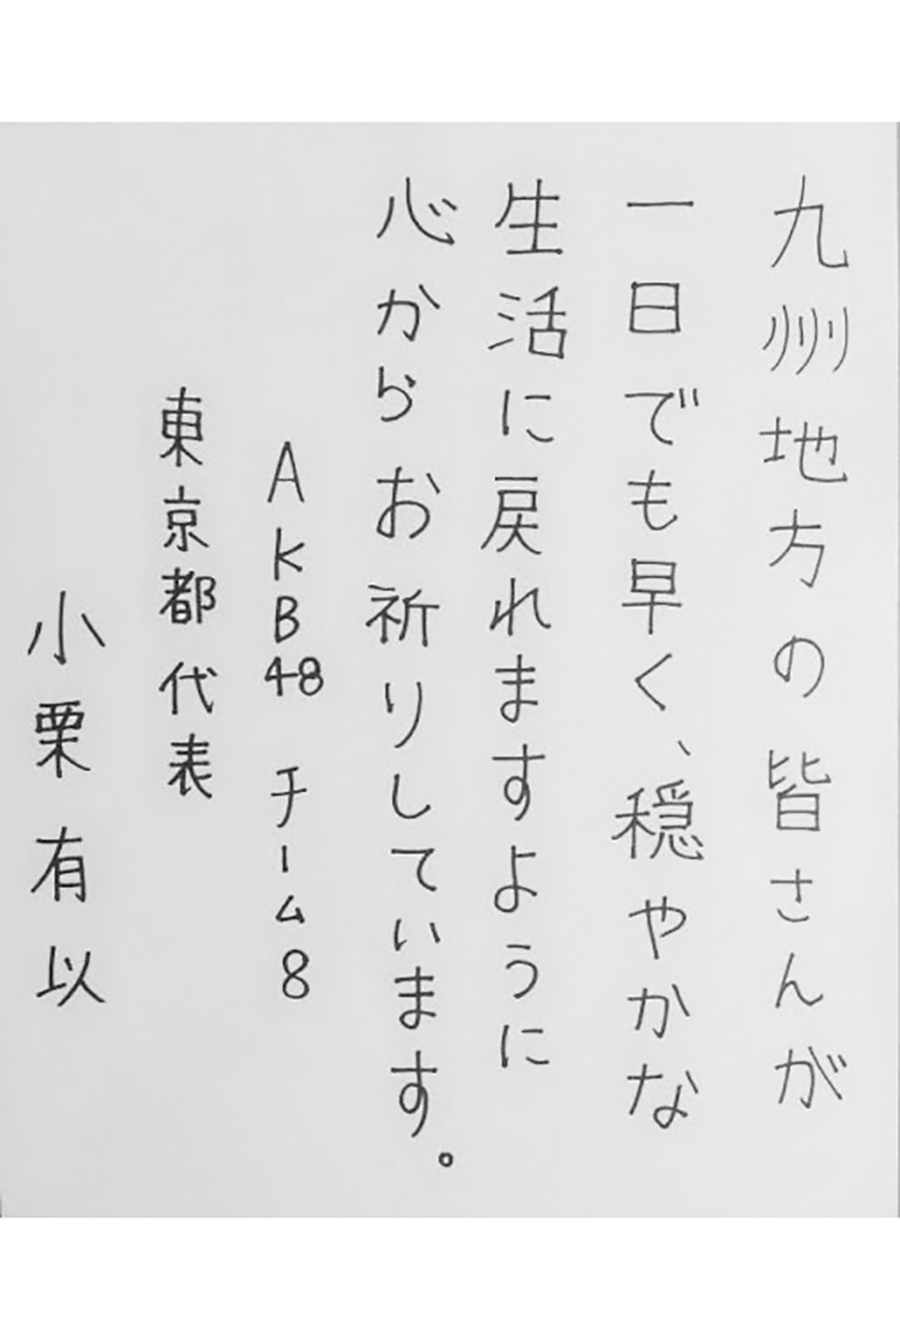 九州地方の皆さんが
一日でも早く、穏やかな
生活に戻れますように
心からお祈りしています。
AKB48 チーム8
東京都代表
小栗有以